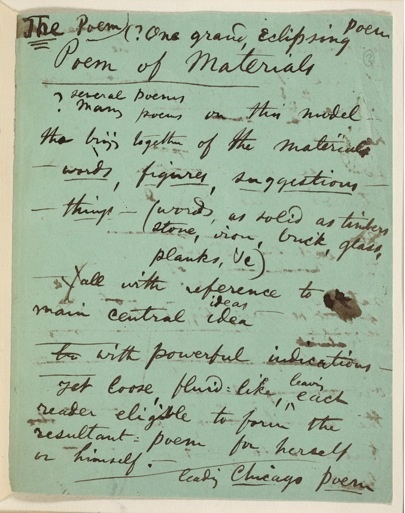 The Poem (? One grand, eclipsing poem
Poem of Materials
? several poems
? many poems on this model
the bring together of the materials
— words, figures, suggestions —
— things — (words, as solid as timbers
stone, iron, brick, glass,
planks, &c)
— all with reference to
main central idea
ideas
with powerful indications —
yet loose, fluid-like, leaving each
reader eligible to form the
resultant-poem for herself
or himself.—
leading Chicago poem